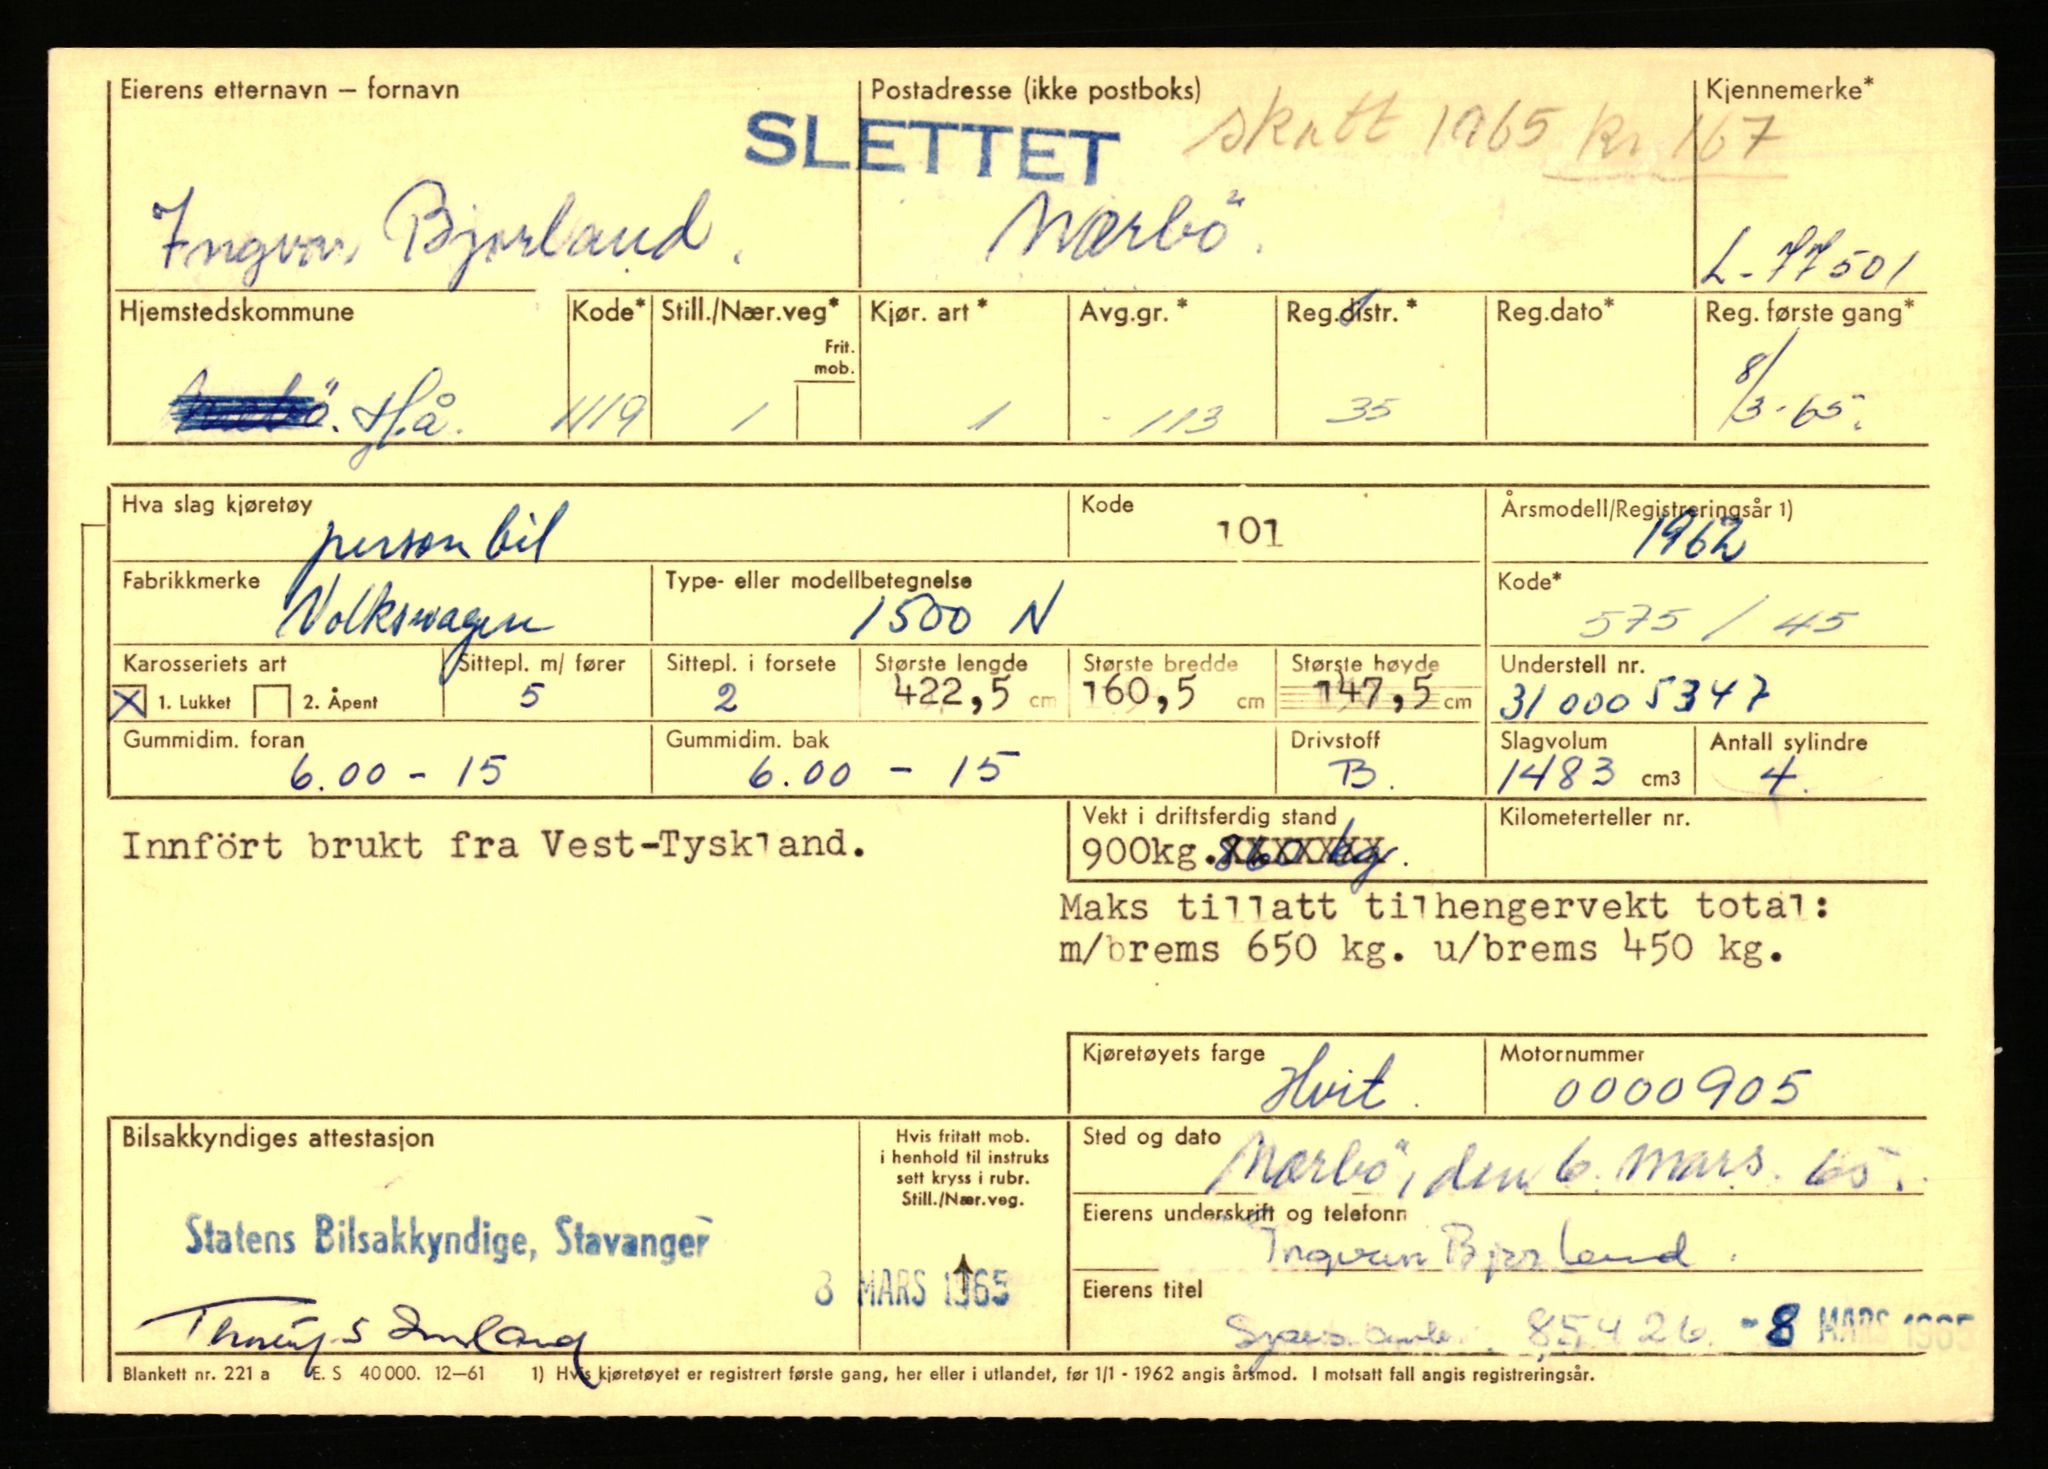 Eierens etternavn – fornavn Postadresse (ikke postboks) Kjennemerke*
SLETTET skatt 1965 kr 167
Ingvar Bjorland. Nærbö. L-77501
Hjemstedskommune Kode* Still./Nær.veg* Kjør. art* Avg.gr.* Reg.distr.* Reg.dato* Reg. første gang*
Frit.
mob.
Hå. 1119 1 1 113 35 8/3-65.
Hva slag kjøretøy Kode Årsmodell/Registreringsår 1)
personbil 101 1962
Fabrikkmerke Type- eller modellbetegnelse Kode*
Volkswagen 1500 N 575 / 45
Karosseriets art Sittepl. m/ fører Sittepl. i forsete Største lengde Største bredde Største høyde Understell nr.
X 1. Lukket 2. Åpent 5 2 422,5 cm 160,5 cm 147,5 cm 310005347
Gummidim. foran Gummidim. bak Drivstoff Slagvolum Antall sylindre
6.00 - 15 6.00 - 15 B. 1483 cm3 4.
Vekt i driftsferdig stand Kilometerteller nr.
Innfört brukt fra Vest-Tyskland. 900kg. 860 kg.
Maks tillatt tilhengervekt total:
m/brems 650 kg. u/brems 450 kg.
Kjøretøyets farge Motornummer
Hvit. 0000905
Bilsakkyndiges attestasjon Hvis fritatt mob.
i henhold til instruks
sett kryss i rubr.
Still./Nær.veg.
Sted og dato
Nærbö, den 6. mars. 65.
Eierens underskrift og telefonn
Statens Bilsakkyndige, Stavanger
Ingvar Bjorland.
8 MARS 1965
Eierens titel
85426. -8 MARS 1965
Blankett nr. 221 a E. S 40 000. 12–61 1) Hvis kjøretøyet er registrert første gang, her eller i utlandet, før 1/1 - 1962 angis årsmod. I motsatt fall angis registreringsår.